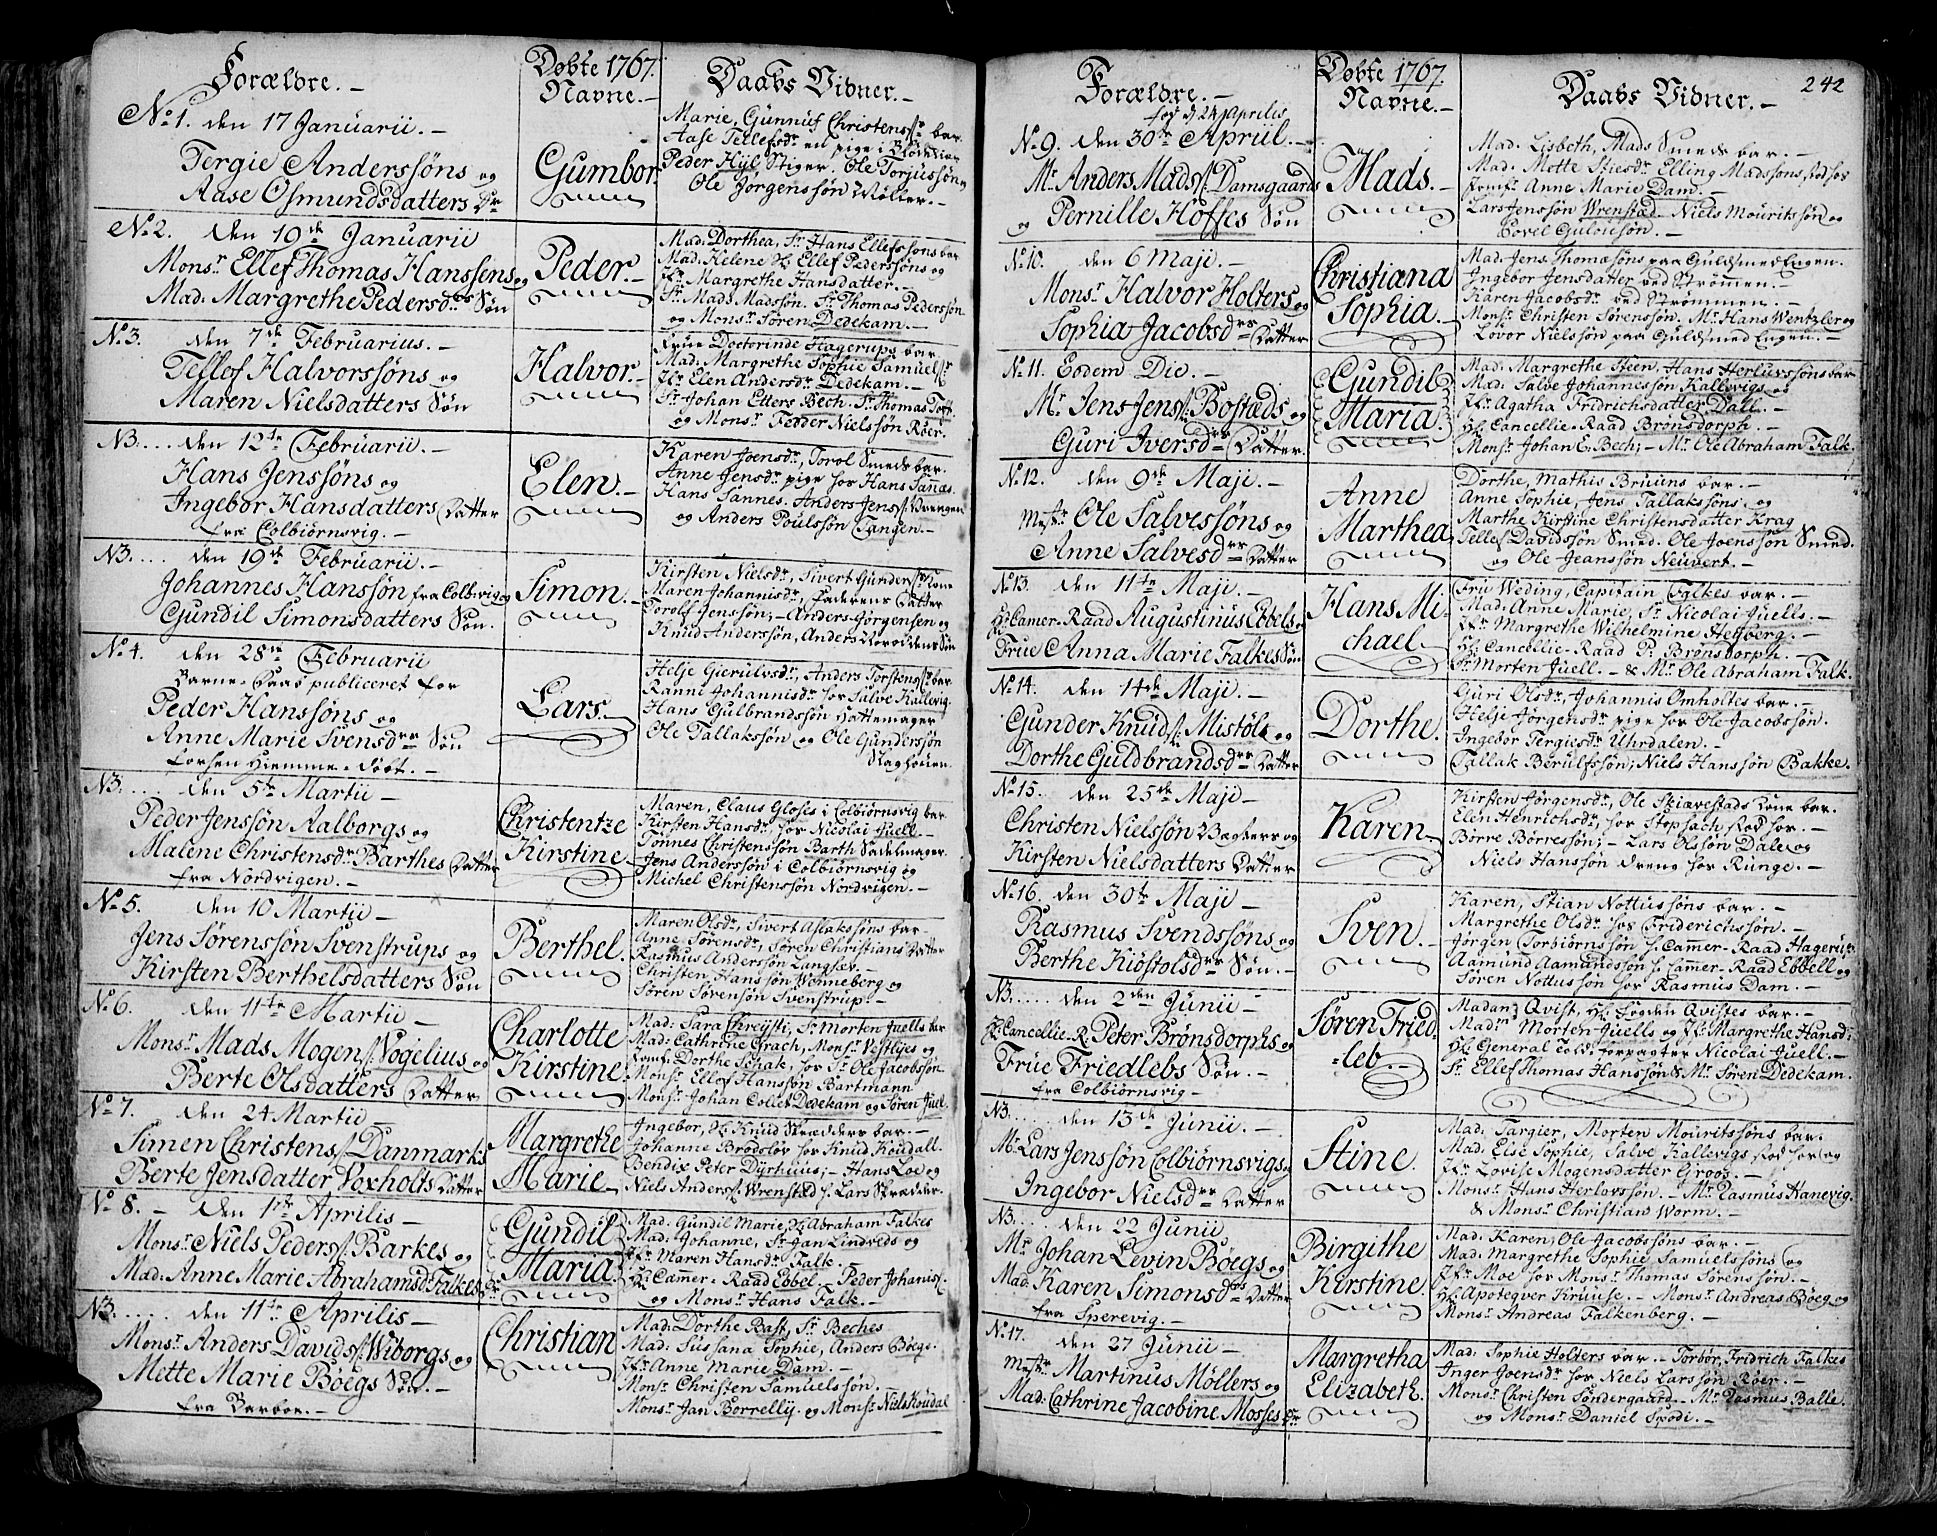 Forældre. –
Døbte 1767.
Navne. –
Daabs Vidner. –
No 1. den 17 Januarii. –
Tergie Anderssøns og
Aase Osmundsdatters Dr
Gumbor.
Marie, Gunnuf Christens bar
Aase Tellefsdr en pige i
Peder Hÿl Stiger. Ole Torjussøn
Ole Jørgenssøn Møller. –
No 2. den 19de Januarii
Monsr Ellef Thomas Hanssøns og
Mad: Margrethe Pedersdrs Søn
Peder. –
Mad: Dorthea, Sr Hans Ellefssøns bar
Mad: Helene Ellef Pederssøns og
Jfr Margrethe Hansdatter. –
Sr Mads Madssøn. Sr Thomas Pederssøn
og Monsr Søren Dedekam. –
No 3. den 7de Februarius. –
Tellef Halvorssøns og
Maren Nielsdatters Søn
Halvor. –
Frue Doctorinde Hagerups bar
Mad: Margrethe Sophie Samuels
Jfr Elen Andersdr Dedekam. –
Sr Johan Etters Bech. Sr Thomas
og Monsr Fedder Nielssøn Röer. –
N3. ... den 12te Februarii. –
Hans Jenssøns og
Ingebor Hansdatters Datter
fra Colbiørnsvig. –
Elen. –
Karen Joensdr, Torol Smeds bar.
Anne Jensdr pige hos Hans Sannæs.
Hans Sannes. Anders Jens
og Anders Poulssøn Tangen. –
N3. ... den 19de Februarii. –
Johannes Hanssøn fra Colbivig og
Gundil Simonsdatters Søn.
Simon. –
Kirsten Nielsdr, Sivert Gunders Kone
Maren Johannisdr, Faderens Datter
Torolf Jenssøn; – Anders Jørgensen og
Knud Anderssøn, Anders
No 4. den 28de Februarii
Barne-Daab publiceret for
Peder Hanssøns og
Anne Marie Svensdrs Søn
forhen Hiemme-Døbt. –
Lars.
Helje Gierulvsdr, Anders Torstens bar
Ranni Johannisdr hos Salve Kallevig.
Hans Gulbrandssøn Hattemager
Ole Tallakssøn og Ole Gunderssøn
N3. ... den 5te Martii –
Peder Jenssøn Aalborgs og
Malene Christensdr Barthes Datter
fra Nordvigen. –
Christentze
Kirstine
Maren, Claus Gloses i Colbiørnsvig bar
Kirsten Hansdr hos Nicolai Juell. –
Tønnes Christenssøn Barth Sadelmager.
Jens Anderssøn i Colbiørnsvig og
Michel Christenssøn Nordvigen. –
No 5. den 10 Martii –
Jens Sørenssøn Svenstrups og
Kirsten Berthelsdatters Søn
Berthel.
Maren Olsdr, Sivert Aslakssøns bar –
Anne Sørensdr, Søren Christians Datter
Rasmus Anderssøn Langsæ. –
Christen Hanssøn Wenneberg og
Søren Sørensøn Svenstrup. –
No 6. den 11te Martii –
Monsr Mads Mogens Vogelius og
Berte Olsdatters Datter
Charlotte
Kirstine
Mad: Sara Chreÿsti, Sr Morten Juells bar
Mad: Cathrine Grach, Monsr Vestlyes og
Jomf: Dorthe Schak, hos Sr Ole Jacobssøn
Monsr Ellef Hanssøn Bartmann
Monsr Johan Collet Dedekam og Søren Juel.
No 7. den 24 Martii –
Simen Christens Danmarks
Berte Jensdatter Voxholts Datter
Margrethe
Marie.
Ingebor, Knud Skrædders bar –
Johanne Brødsløv hos Knud Koudall
Bendix Peter Dyrhuus; – Hans Loe og
Niels Anders Wrensted h. Lars Skræder.
No 8. – den 1ste Aprilis –
Monsr Niels Peders Barkes og
Mad: Anne Marie Abrahamsd Falkes Dr
Gundil
Maria.
Mad: Gundil Marie, Abraham Falkes
Mad: Johanne, Sr Jan Lindveds og
Jfr Maren Hansdr Falk. –
Hr Camer-Raad Ebbel – Peder Johanis
og Monsr Hans Falk. –
N3. ... den 11te Aprilis –
Monsr Anders Davids Wiborgs og
Mette Marie Böegs Søn. –
fra Barboe. –
Christian
Mad: Dorthe Bast, Sr Beches
Mad: Sussana Sophie, Anders Böegs.
Jfr Anne Marie Dam. –
Monsr Christen Samuelssøn. –
Monsr Jan Borrelly. og Monsr Niels Koudal
Forældre. –
Døbte 1767.
Navne. –
Daabs Vidner. –
242
fød d. 24 Aprilis
No 9. den 30te Apriil. –
Mr Anders Mads Damsgaards
og Pernille Hoffes Søn
Mads. –
Mad: Lisbeth, Mads Smeds bar. –
Mad: Mette Stiesdr Elling Madssøns
Jomfr Anne Marie Dam. –
Lars Jenssøn Wrensted. Niels Mouritssøn og
Povel Guldussøn. –
No 10. den 6 Maji. –
Monsr Halvor Holters og
Sophia Jacobsdrs Datter
Christiana
Sophia. –
Mad: Jens Thomæssøns paa Guldsmed Engen.
Ingebor Jensdatter ved Strømen. –
Karen Jacobsdr ved Strømmen. –
Monsr Christen Sørenssøn. Mr Hans Wentzler og
Lovor Nielssøn paa Guldsmed Engen. –
No 11. Eodem Die. –
Mr Jens Jens Bostæds og
Guri Iversdrs Datter.
Gundil
Maria.
Mad: Margrethe Steen, Hans Herluvssøns bar
Mad: Salve Johannessøn Kallevigs og
Jfr Agatha Fridrichsdatter Dall. –
Hr Cancellie-Raad Brønsdorph. –
Monsr Johan E. Bech; – Mr Ole Abraham Falk.
No 12. den 9de Maji. –
Mestr Ole Salvessøns og
Anne Salvesdrs Datter
Anne
Marthea
Dorthe, Mathis Bruuns bar. –
Anne Sophie, Jens Tallakssøns og
Marthe Kirstine Christensdatter Krag
Tellef Davidssøn Smed. Ole Joenssøn Smed.
og Ole Jeanssøn Neuvert. –
No 13. den 11te Maji. –
Hr Camer-Raad Augustinus Ebbels og
Frue Anna Marie Falkes Søn
Hans Mi-
chael
Fru Weding, Capitain Falkes bar. –
Mad: Anne Marie, Sr Nicolai Juells. –
Jfr Margrethe Wilhelmine Heyberg. –
Hr Cancellie-Raad P: Brønsdorph. –
Sr Morten Juell. – & Mr Ole Abraham Falk.
No 14. den 14de Maji. –
Gunder Knuds Mistöl og
Dorthe Guldbrandsdrs Datter
Dorthe.
Guri Olsdr, Johannis Omholtes bar. –
Helje Jørgensdr pige hos Ole Jacobssøn.
Ingebor Tergiesdr Uhrdalen. –
Tallak Berulfssøn; Niels Hanssøn Bakke.
No 15. den 25de Maji –
Christen Nielssøn Bagerr og
Kirsten Nielsdatters Datter
Karen
Kirsten Jørgensdr, Ole Skiævestads Kone bar.
Elen Henrichsdr, hos Stephach. –
Børre Børressøn; – Lars Olssøn Dale og
Niels Hanssøn Dreng hos Runge. –
No 16. den 30te Maji –
Rasmus Svendssøns og
Berthe Kiöstolsdrs Søn. –
Sven. –
Karen, Stian Nottussøns bar. –
Margrethe Olsdr hos Friderichssøn. –
Jørgen Torbiørnssøn h. Camer-Raad Hagerup
Aamund Aamundssøn h. Camer-Raad Ebbell og
Søren Nottussøn hos Rasmus Dam. –
N3. ... den 2den Junii –
Hr Cancellie-R. Peter Brønsdorphs og
Frue Friedlebs Søn. –
fra Colbiørnsvig –
Søren Fried
-leb.
Madam Qvist, Hr Fogden Qvistes bar. –
Madm Morten Juells og Jfr Margrethe Hansdr
Hr General Told-forpagter Nicolai Juell. –
Sr Ellef Thomas Hanssøn & Mr Søren Dedekam.
N3. ... den 13de Junii. –
Mr Lars Jenssøn Colbiørnsvigs og
Ingebor Nielsdrs Datter
Stine.
Mad: Targier, Morten Mouritssøns bar.
Mad: Else Sophie, Salve Kallevigs og
Jfr Lovise Mogensdatter Groos. –
Monsr Hans Herlovssøn. – Mr Rasmus Hanevig.
& Monsr Christian Worm. –
N3. ... den 22 Junii
Mr Johan Levin Böegs og
Mad: Karen Simonsdrs Datter
fra Sperevig. –
Birgithe
Kirstine.
Mad: Karen, Ole Jacobssøns bar. –
Mad: Margrethe Sophie Samuelssøns og
Jfr Moe hos Monsr Thomas Sørenssøn. –
Hr Apoteqver Kruuse. – Monsr Andreas Böeg og
Monsr Andreas Falkenberg. –
No 17. den 27 Junii –
Mestr Martinus Möllers og
Mad: Cathrine Jacobine Mosses Dr
Margretha
Elizabeth.
Mad: Sophie Holters bar. – Torbor, Fridrich Falkes
Inger Joensdr hos Niels Larssøn Röer. –
Monsr Christen Søndergaard. – Mr Rasmus Balle.
og Monsr Daniel Spodi. –